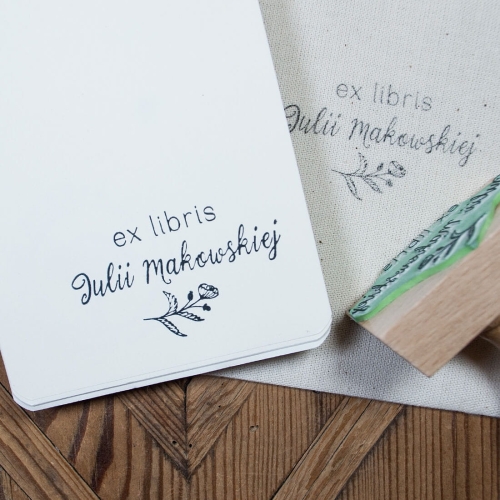 ex libris
Julii Makowskiej
ex libris
Julii Makowskiej